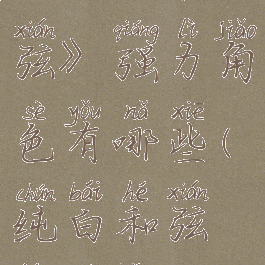 xián qiáng lì jiǎo
弦》 强力角
sè yǒu nǎ xiē
色有哪些(
chún bái hé xián
纯白和弦